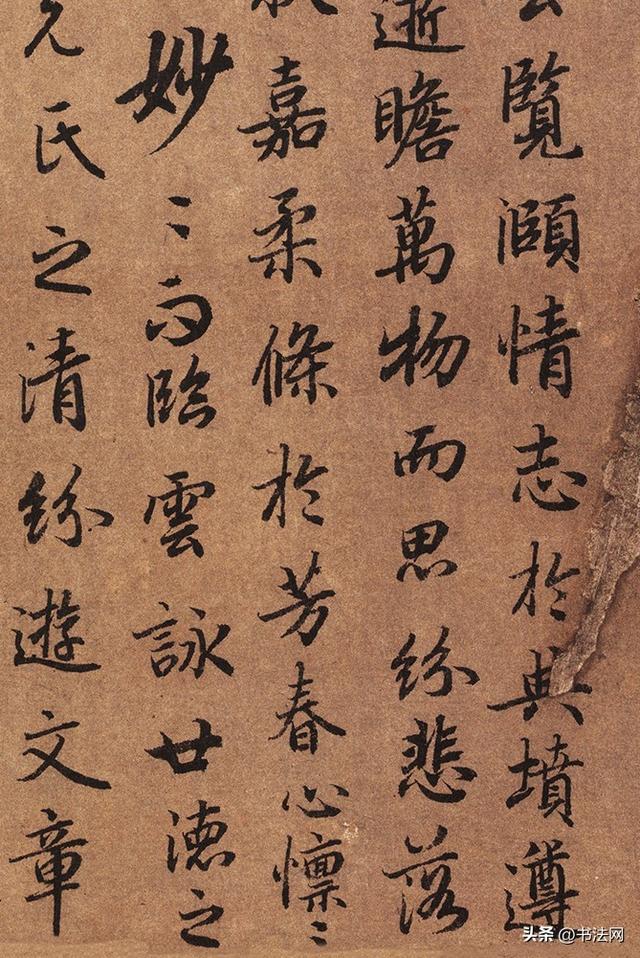 覽頤情志於典墳遵
逝瞻萬物而思紛悲落
嘉柔條於芳春心懍〻
妙〻而臨雲詠世德之
先民之清紛遊文章
头条 @书法网